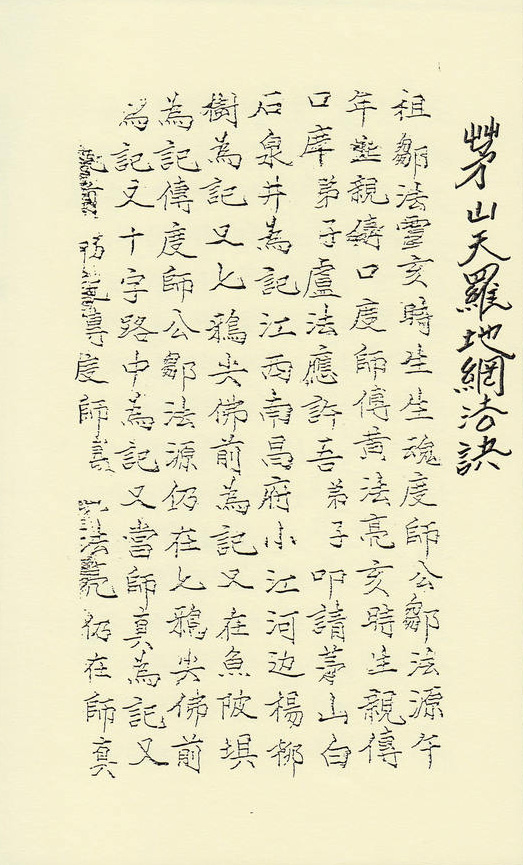 茅山天羅地網法訣
祖鄒法靈亥時生生魂度師公鄒法源午
年親傳口度師傅黃法亮亥時生親傳
口庠弟子盧法應許吾弟子叩請茅山白
石泉井為記江西南昌府小江河边楊柳
樹為記又七鴉尖佛前為記又在魚陂垻
為記傳度師公鄒法源仍在七鴉尖佛前
為記又十字路中為記又當師真為記又
傳度師真法亮仍在師真